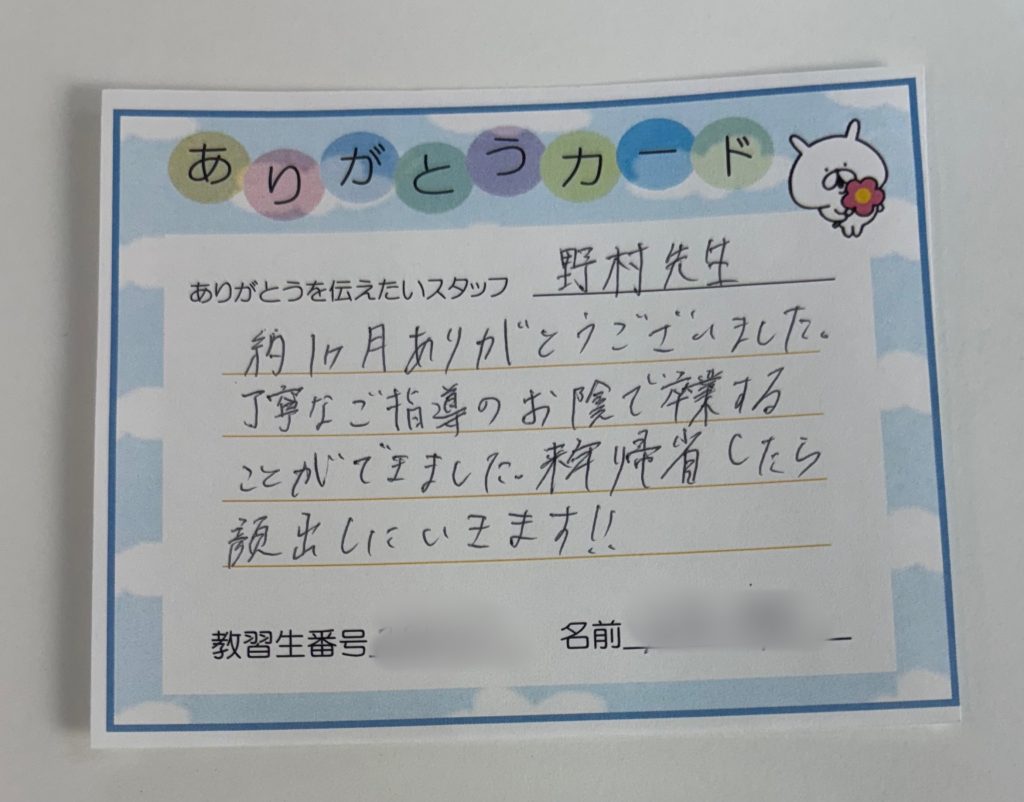 ありがとうカード
ありがとうを伝えたいスタッフ 野村先生
約1ヶ月ありがとうございました。
丁寧なご指導のお陰で卒業する
ことができました。来年帰省したら
顔出しにいきます!!
教習生番号 名前